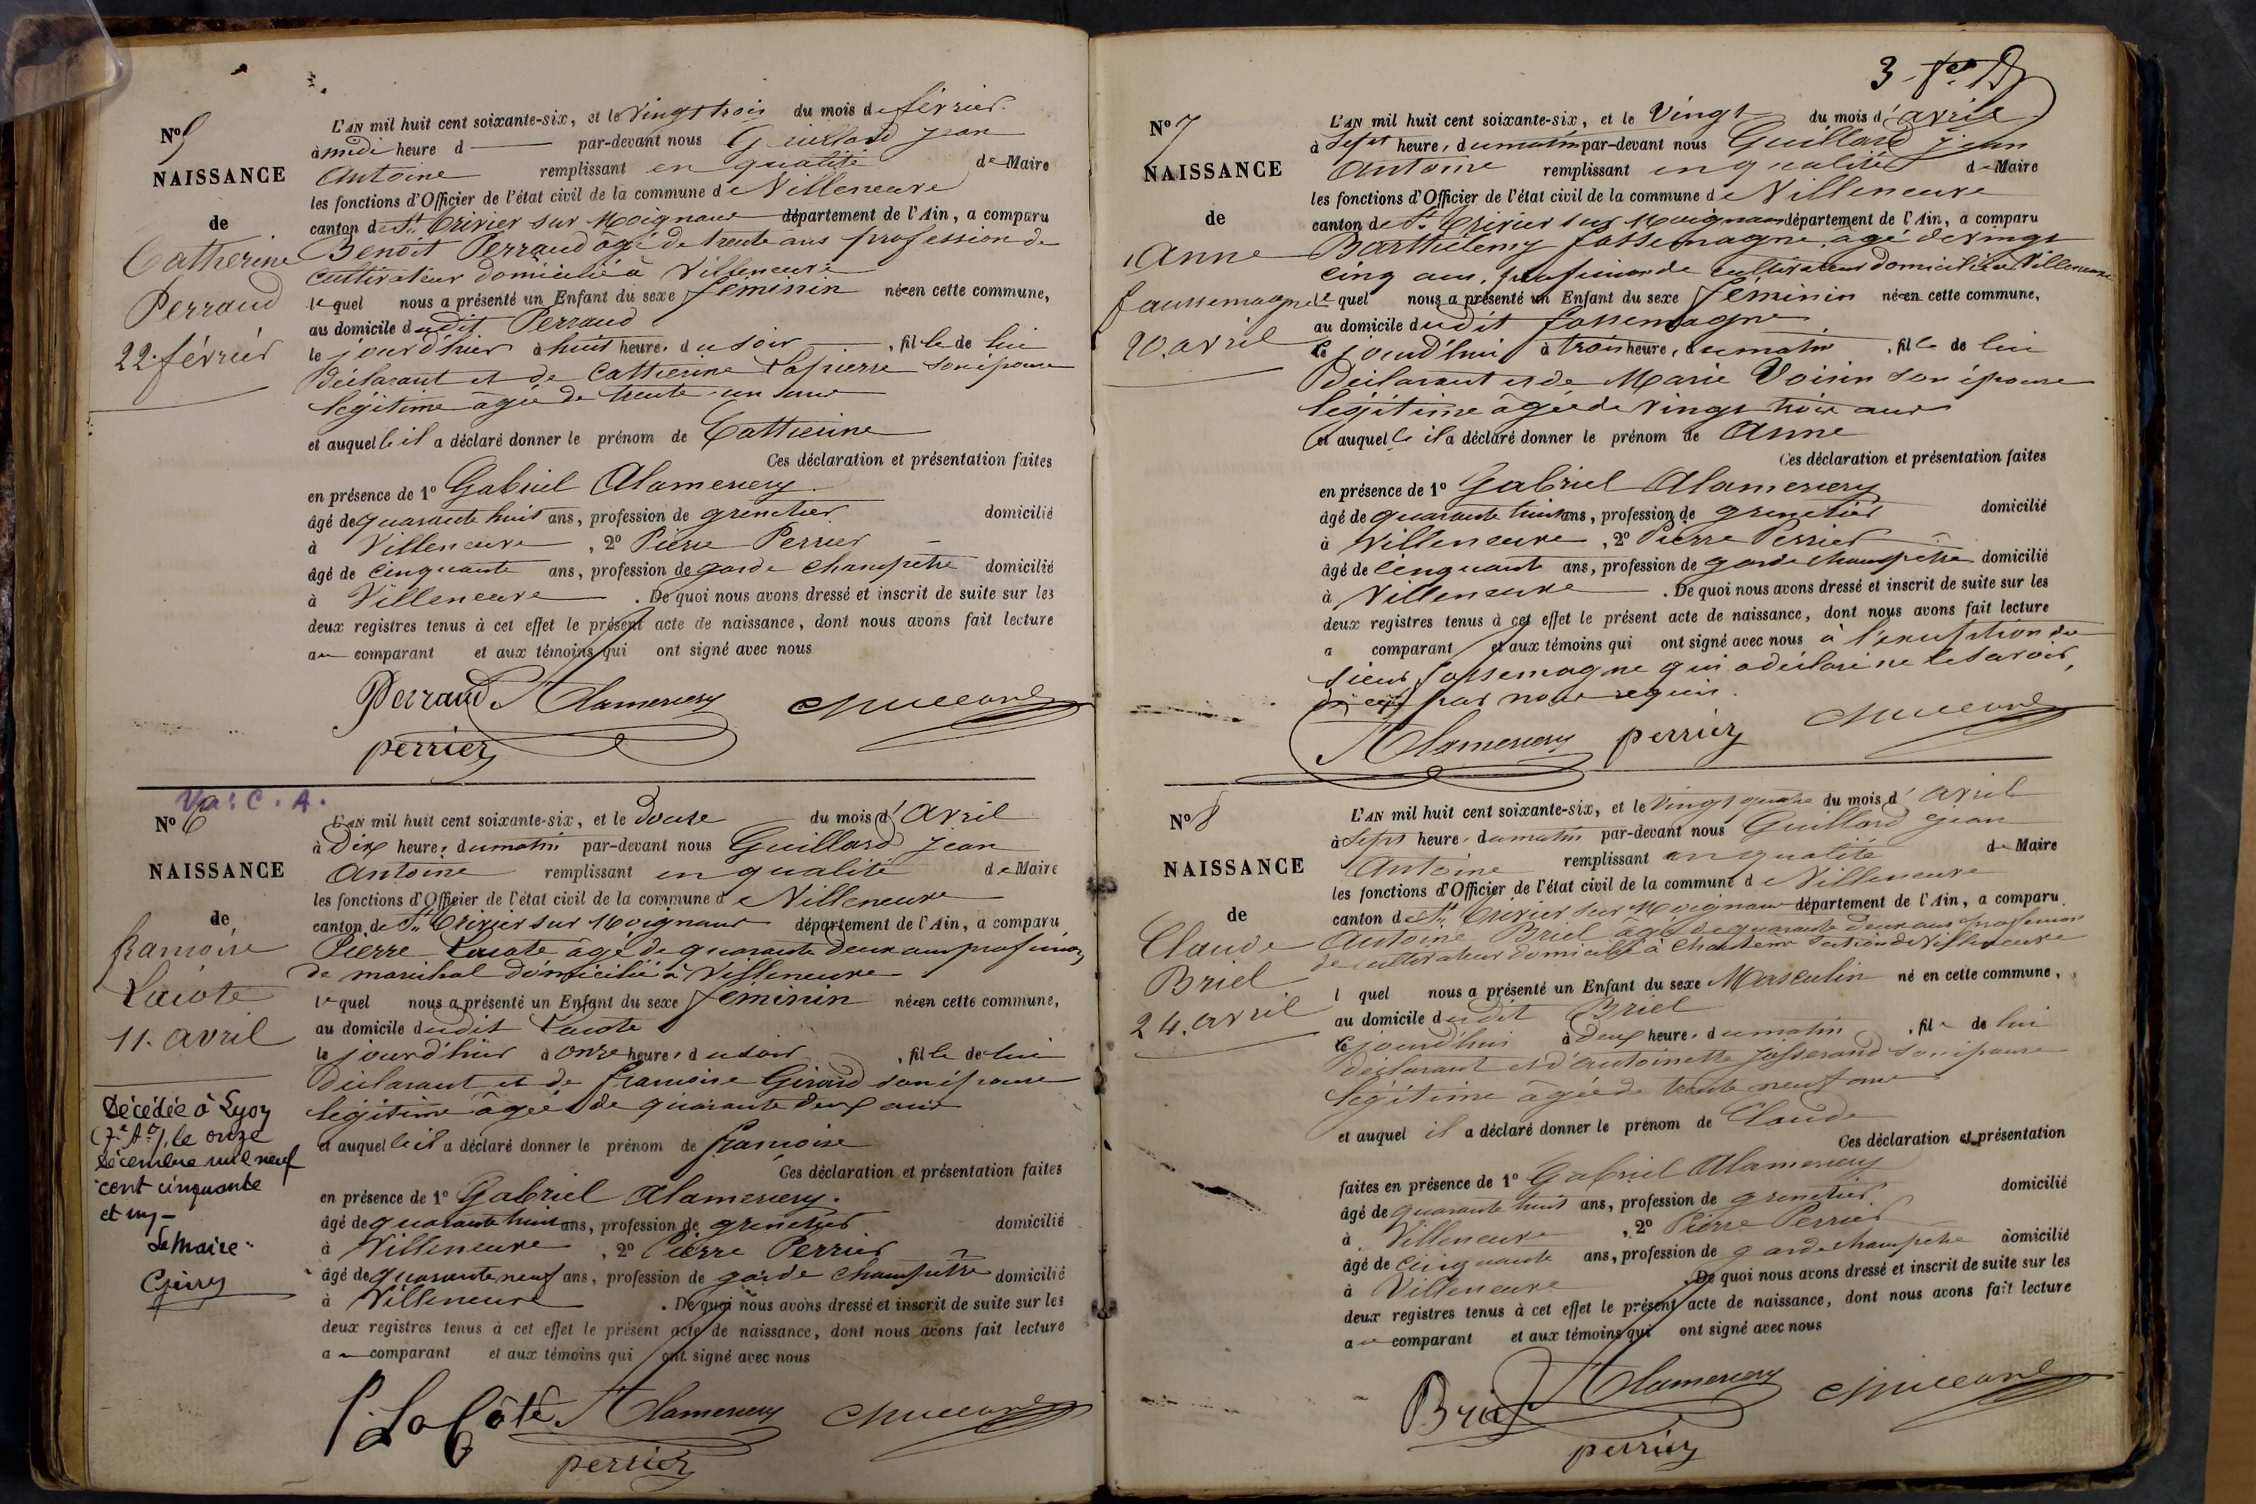 N° 5
NAISSANCE
de
Catherine
Perraud
22. février
L'AN mil huit cent soixante-six, et le Vingt trois du mois de février
à midi heure d par-devant nous Guillard Jean
Antoine remplissant en qualité de Maire
les fonctions d'Officier de l'état civil de la commune de Villeneuve
canton de St Trivier sur Moignans département de l'Ain, a comparu
Benoit Perraud âgé de trente ans profession de
cultivateur domicilié à Villeneuve
lequel nous a présenté un Enfant du sexe féminin née en cette commune,
au domicile dudit Perraud
le jourd'hier à huit heures du soir, fille de lui
déclarant et de Catherine Lapierre son épouse
légitime âgée de trente un ans
et auquelle il a déclaré donner le prénom de Catherine
Ces déclaration et présentation faites
en présence de 1° Gabriel Alamercery
âgé de quarante huit ans, profession de grenetier domicilié
à Villeneuve, 2° Pierre Perrier
âgé de cinquante ans, profession de garde champêtre domicilié
à Villeneuve. De quoi nous avons dressé et inscrit de suite sur les
deux registres tenus à cet effet le présent acte de naissance, dont nous avons fait lecture
au comparant et aux témoins qui ont signé avec nous
Perraud Alamercery Guillard
perrier
Vu: C. A.
N° 6
NAISSANCE
de
françoise
Lacote
11. avril
Décédée à Lyon
(7e Ar), le onze
décembre mil neuf
cent cinquante
et un -
Le Maire
L'AN mil huit cent soixante-six, et le Douze du mois d'avril
à Dix heures du matin par-devant nous Guillard Jean
Antoine remplissant en qualité de Maire
les fonctions d'Officier de l'état civil de la commune de Villeneuve
canton de St Trivier sur Moignans département de l'Ain, a comparu
Pierre Lacote âgé de quarante deux ans profession
de maréchal domicilié à Villeneuve
lequel nous a présenté un Enfant du sexe féminin née en cette commune,
au domicile dudit Lacote
le jourd'hier à onze heures du soir, fille de lui
déclarant et de françoise Girard son épouse
légitime âgée de quarante deux ans
et auquelle il a déclaré donner le prénom de françoise
Ces déclaration et présentation faites
en présence de 1° Gabriel Alamercery.
âgé de quarante huit ans, profession de grenetier domicilié
à Villeneuve, 2° Pierre Perrier
âgé de quarante neuf ans, profession de garde champêtre domicilié
à Villeneuve. De quoi nous avons dressé et inscrit de suite sur les
deux registres tenus à cet effet le présent acte de naissance, dont nous avons fait lecture
au comparant et aux témoins qui ont signé avec nous
P. La Côte Alamercery Guillard
perrier
3
N° 7
NAISSANCE
de
Anne
faussemagne
20. avril
L'AN mil huit cent soixante-six, et le Vingt du mois d'avril
à Sept heures du matin par-devant nous Guillard Jean
Antoine remplissant en qualité de Maire
les fonctions d'Officier de l'état civil de la commune de Villeneuve
canton de St Trivier sur Moignans département de l'Ain, a comparu
Barthélemy fossemagne, âgé de vingt
cinq ans, profession de cultivateur domicilié à Villeneuve
lequel nous a présenté un Enfant du sexe féminin née en cette commune,
au domicile dudit fossemagne
le jourd'hui à trois heures du matin, fille de lui
déclarant et de Marie Voisin son épouse
légitime âgée de Vingt trois ans
et auquelle il a déclaré donner le prénom de Anne
Ces déclaration et présentation faites
en présence de 1° Gabriel Alamercery
âgé de quarante huit ans, profession de grenetier domicilié
à Villeneuve, 2° Pierre Perrier
âgé de cinquante ans, profession de garde champêtre domicilié
à Villeneuve. De quoi nous avons dressé et inscrit de suite sur les
deux registres tenus à cet effet le présent acte de naissance, dont nous avons fait lecture
a comparant et aux témoins qui ont signé avec nous à l'exception du
sieur fossemagne qui a déclaré ne le savoir,
de ce par nous requis.
Alamercery perrier Guillard
N° 8
NAISSANCE
de
Claude
Briel
24. avril
L'AN mil huit cent soixante-six, et le Vingt quatre du mois d'avril
à Sept heures du matin par-devant nous Guillard Jean
Antoine remplissant en qualité de Maire
les fonctions d'Officier de l'état civil de la commune de Villeneuve
canton de St Trivier sur Moignans département de l'Ain, a comparu
Antoine Briel âgé de quarante deux ans profession
de cultivateur domicilié à section de Villeneuve
l quel nous a présenté un Enfant du sexe Masculin né en cette commune,
au domicile dudit Briel
le jourd'hui à deux heures du matin, fils de lui
déclarant et d'antoinette Josserand son épouse
légitime âgée de trente neuf ans
et auquel il a déclaré donner le prénom de Claude
Ces déclaration et présentation
faites en présence de 1° Gabriel Alamercery
âgé de quarante huit ans, profession de grenetier domicilié
à Villeneuve, 2° Pierre Perrier
âgé de cinquante ans, profession de garde champêtre domicilié
à Villeneuve. De quoi nous avons dressé et inscrit de suite sur les
deux registres tenus à cet effet le présent acte de naissance, dont nous avons fait lecture
au comparant et aux témoins qui ont signé avec nous
Briel Alamercery Guillard
perrier